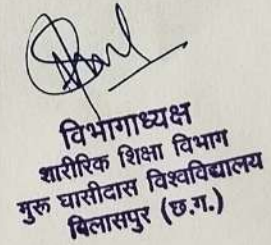 विभागाध्यक्ष
शारीरिक शिक्षा विभाग
गुरू घासीदास विश्वविद्यालय
बिलासपुर (छ.ग.)